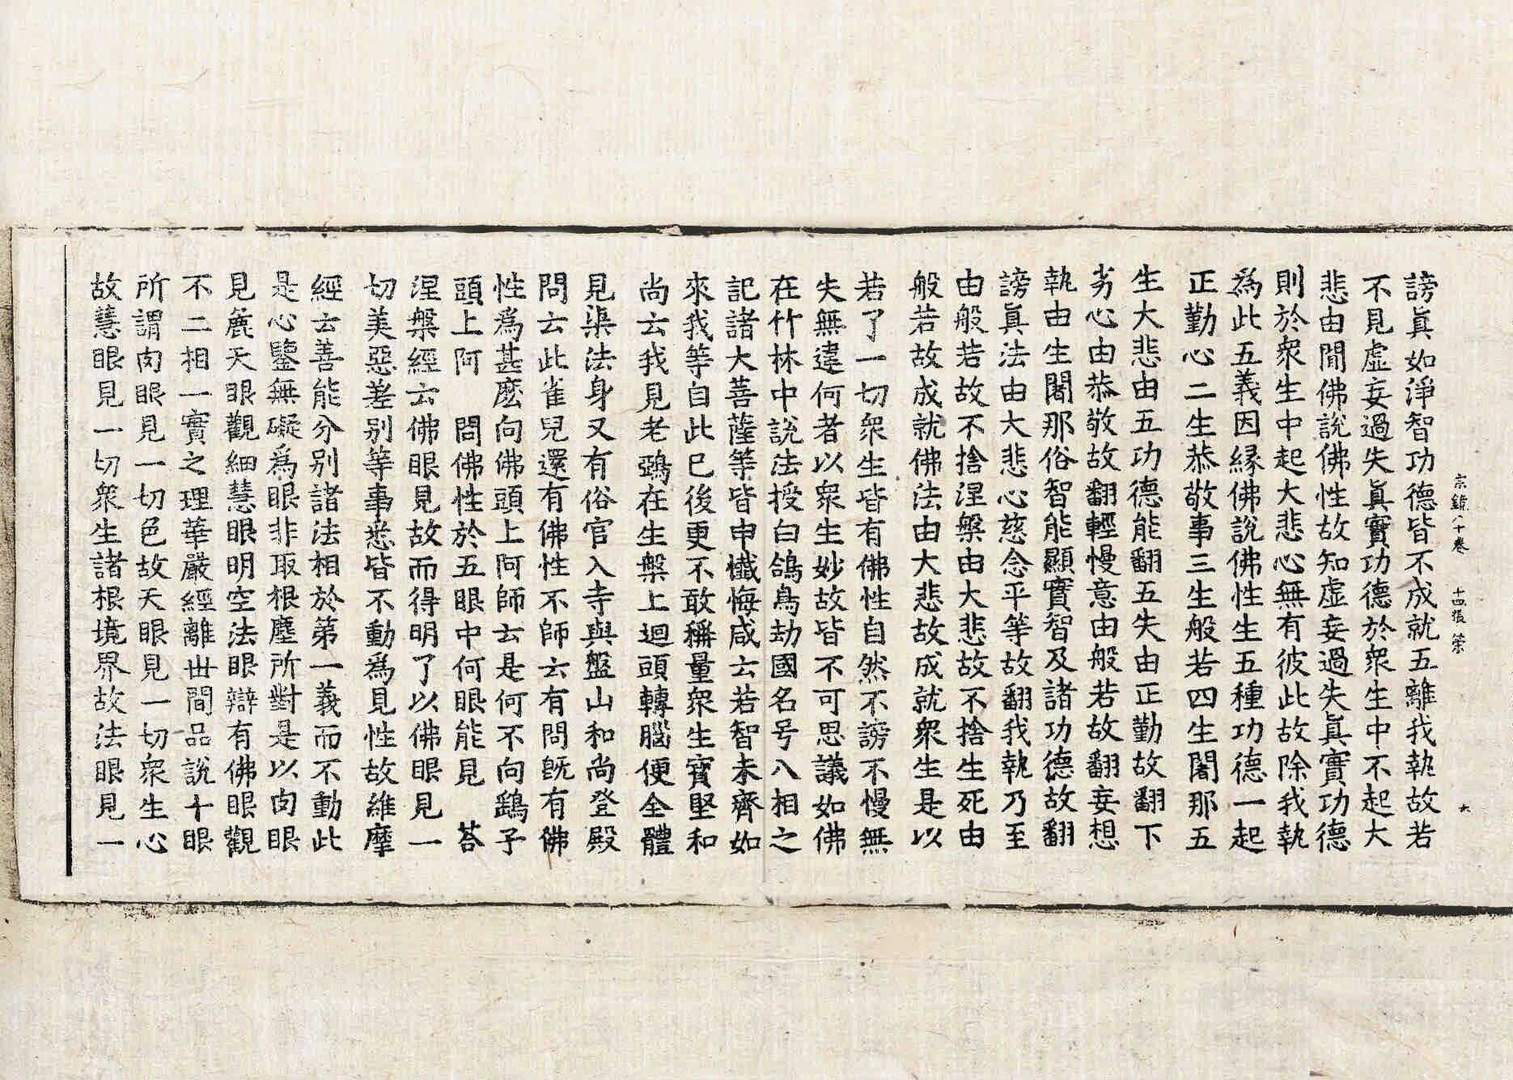 宗鏡八十卷 十四張 榮 大
謗眞如淨智功德皆不成就五離我執故若
不見虛妄過失眞實功德於衆生中不起大
悲由聞佛說佛性故知虛妄過失眞實功德
則於衆生中起大悲心無有彼此故除我執
爲此五義因縁佛說佛性生五種功德一起
正勤心二生恭敬事三生般若四生闍那五
生大悲由五功德能翻五失由正勤故翻下
劣心由恭敬故翻輕慢意由般若故翻妄想
執由生闍那俗智能顯實智及諸功德故翻
謗眞法由大悲心慈念平等故翻我執乃至
由般若故不捨涅槃由大悲故不捨生死由
般若故成就佛法由大悲故成就衆生是以
若了一切衆生皆有佛性自然不謗不慢無
失無違何者以衆生妙故皆不可思議如佛
在竹林中說法授白鴿鳥劫國名号八相之
記諸大菩薩等皆申懺悔咸云若智未齊如
來我等自此已後更不敢稱量衆生寶堅和
尚云我見老鵶在生槃上迴頭轉腦便全體
見渠法身又有俗官入寺與盤山和尚登殿
問云此雀兒還有佛性不師云有問旣有佛
性爲甚麽向佛頭上阿師云是何不向鷂子
頭上阿 問佛性於五眼中何眼能見 荅
涅槃經云佛眼見故而得明了以佛眼見一
切美惡差別等事悉皆不動爲見性故維摩
經云善能分別諸法相於第一義而不動此
是心鑒無礙爲眼非取根塵所對是以肉眼
見麁天眼觀細慧眼明空法眼辯有佛眼觀
不二相一實之理華嚴經離世間品說十眼
所謂肉眼見一切色故天眼見一切衆生心
故慧眼見一切衆生諸根境界故法眼見一